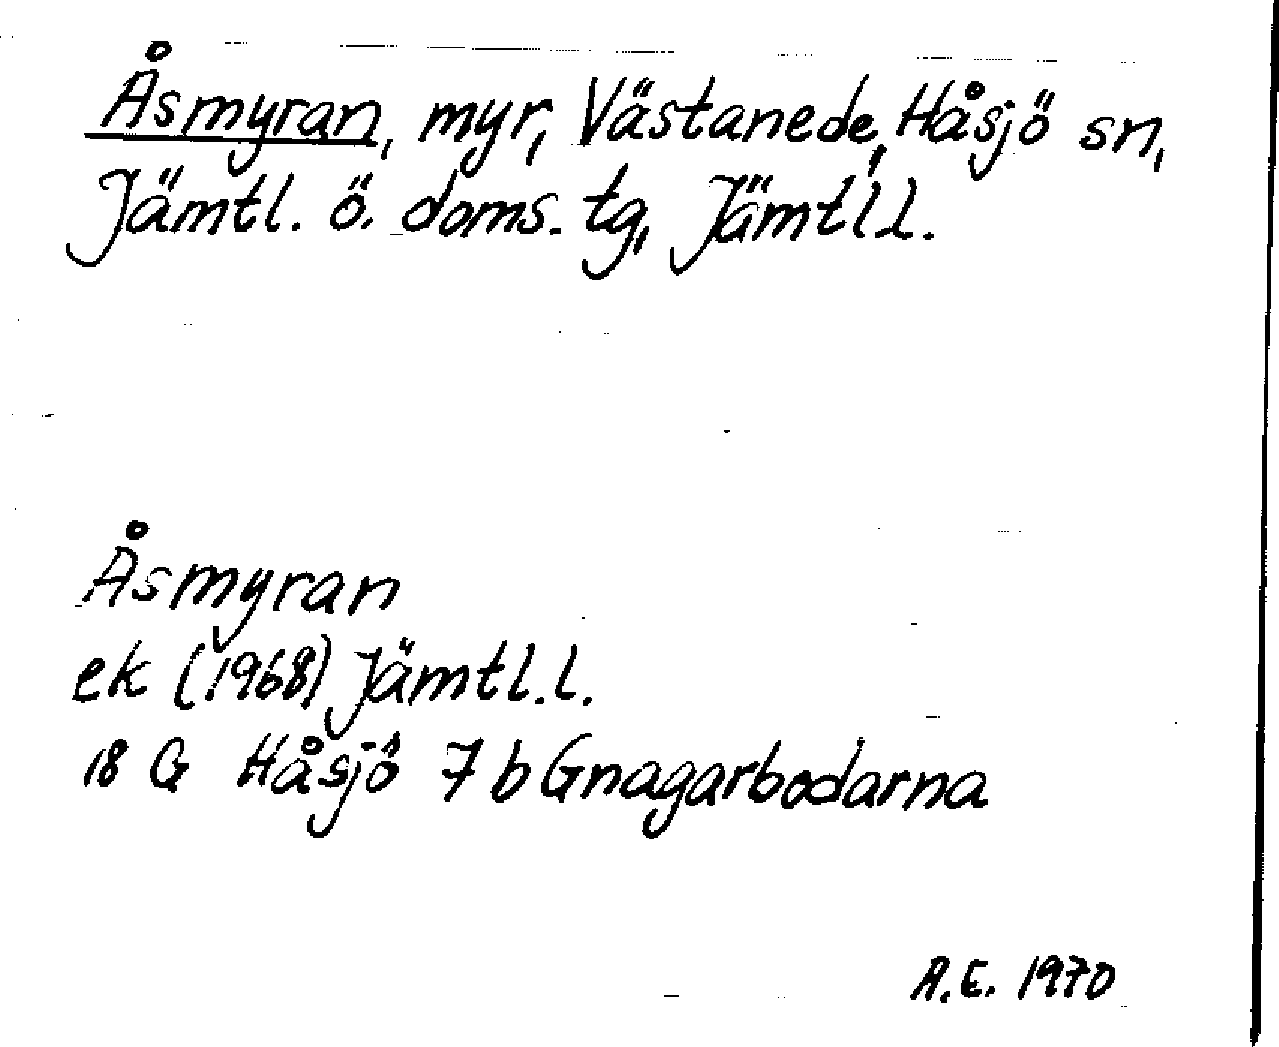 Åsmyran, myr, Västanede, Håsjö sn,
Jämtl. ö. doms. tg, Jämtl l.
Åsmyran
ek (1968) Jämtl. l.
18 G Håsjö 7 b Gnagarbodarna
A.E. 1970